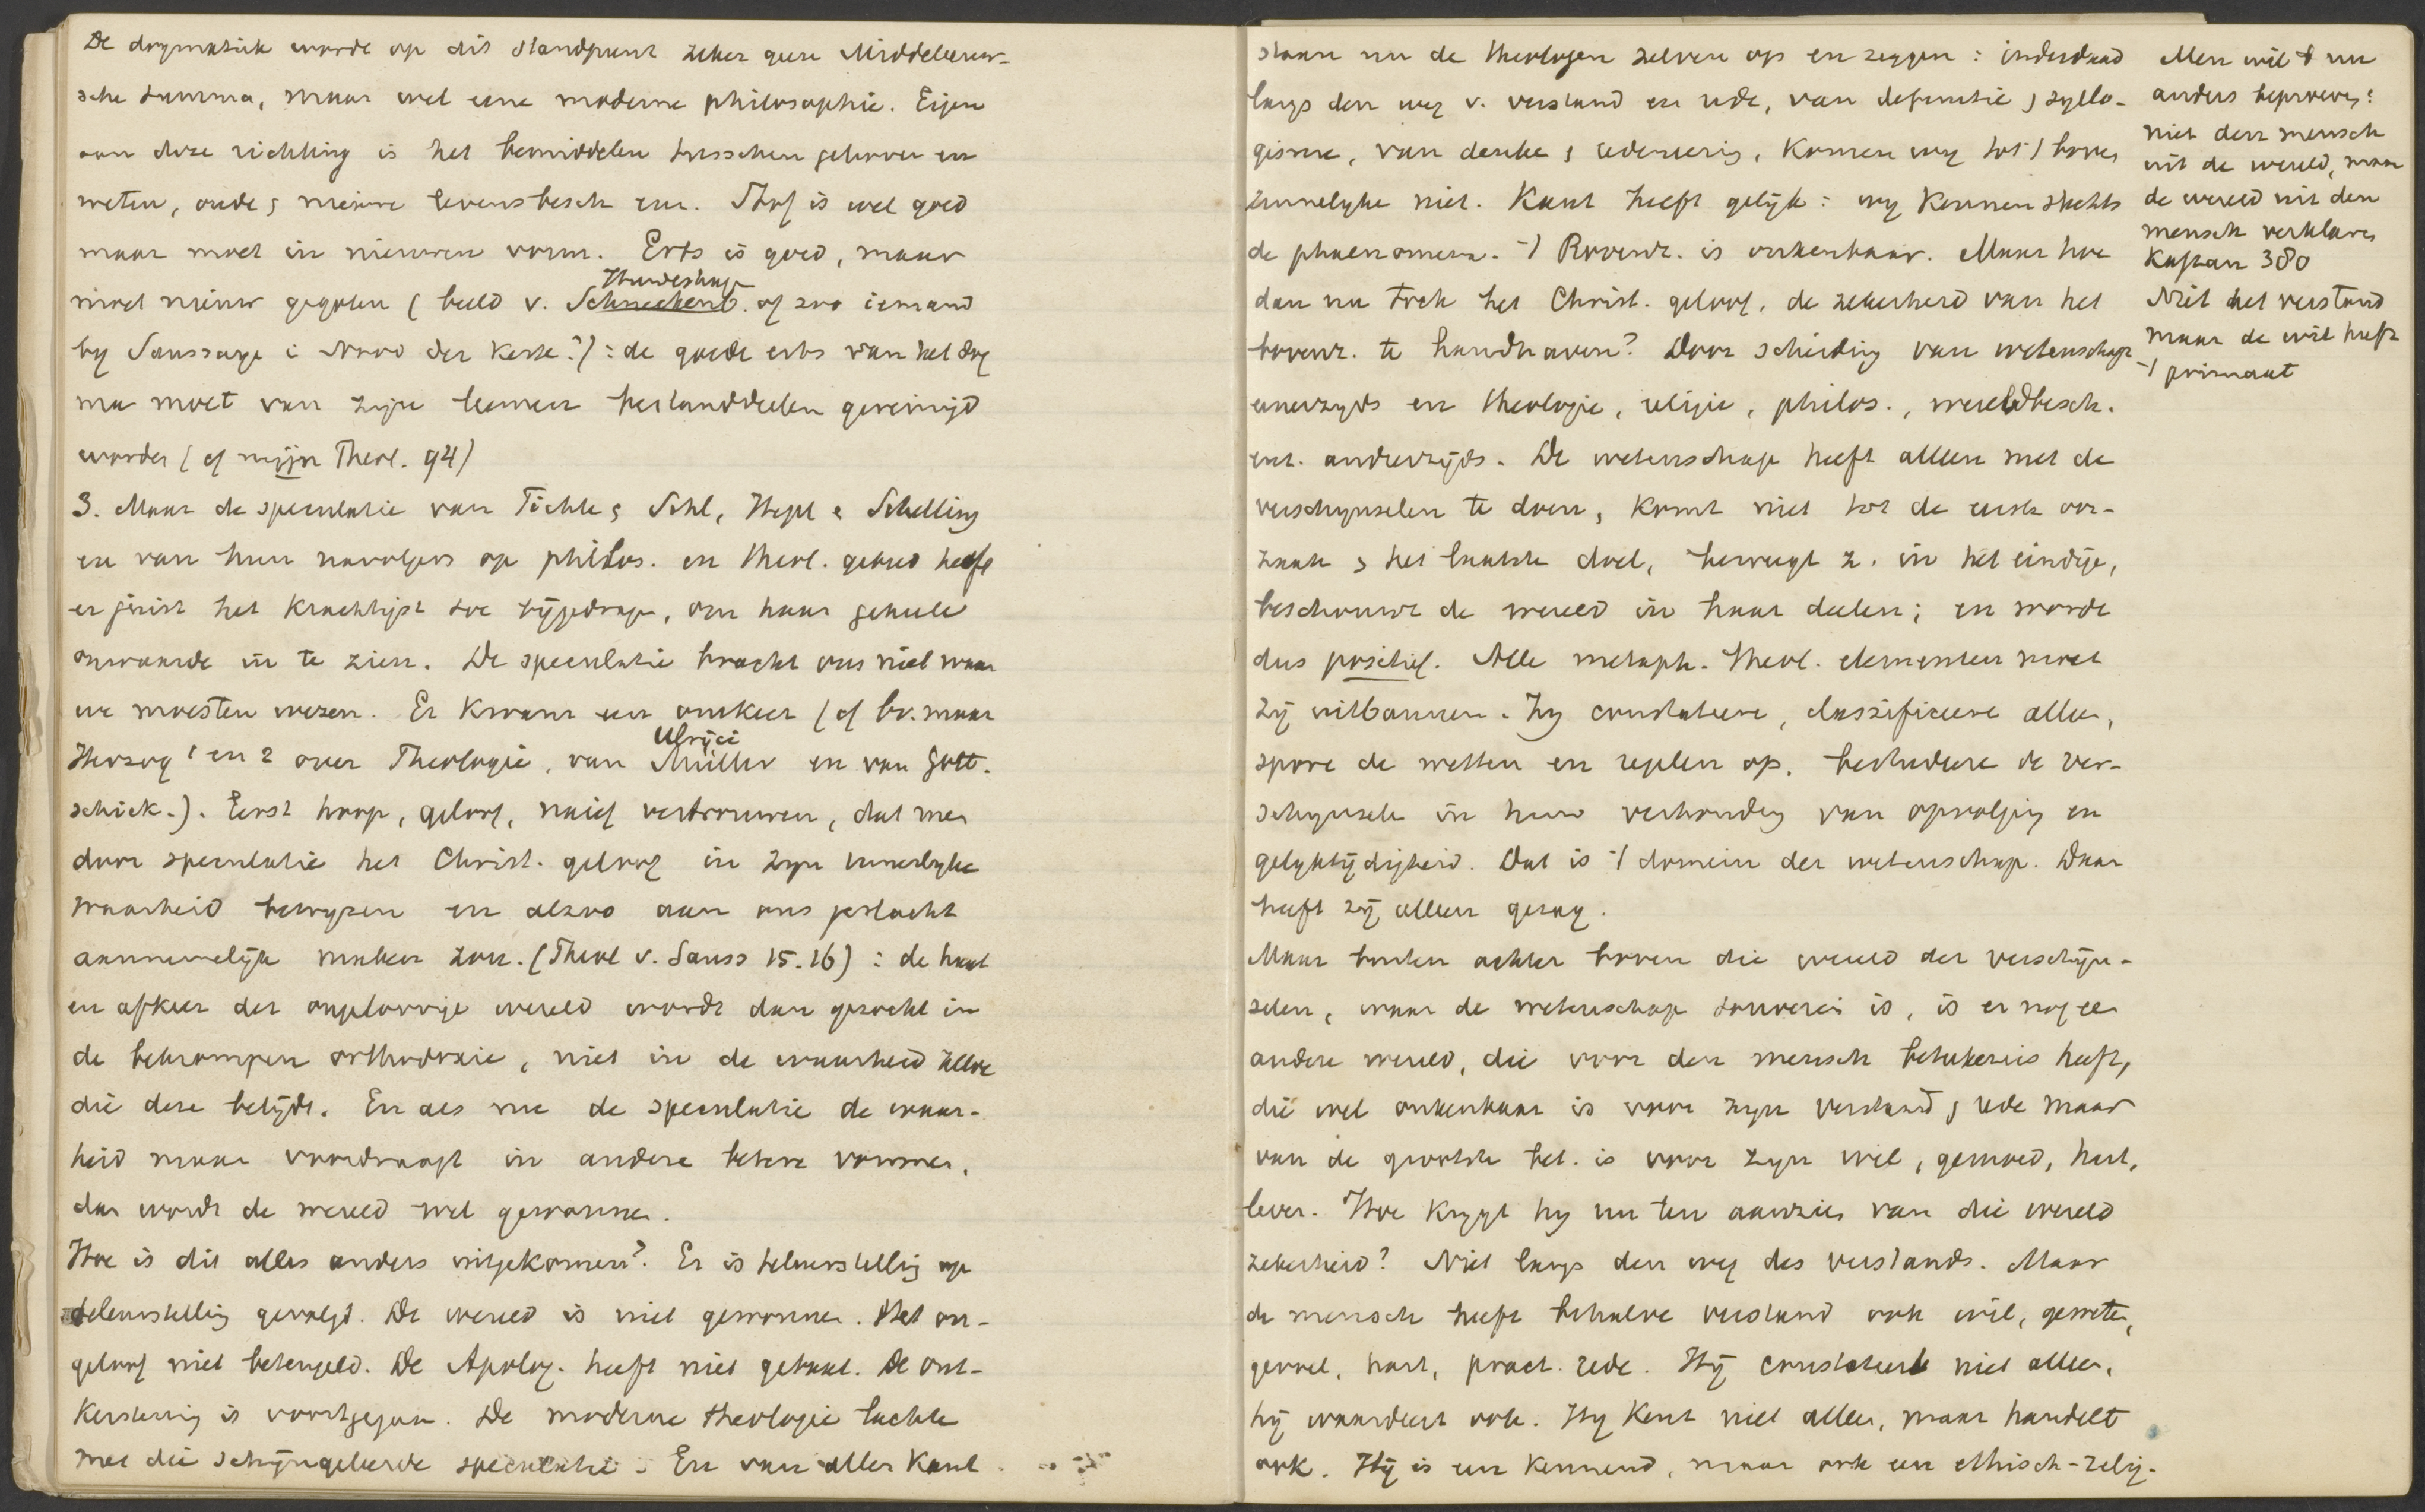 De dogmatiek worde op dit standpunt zeker geene Middeleeuw-
sche summa, maar wel eene moderne philosophie. Eigen
aan deze richting is het bemiddelen tusschen gelooven en
weten, oude & nieuwe levensbesch enz. Stof is wel goed
maar moet in nieuwen vorm. Erts is goed, maar
Hundeshag
moet nieuw gegoten (beeld v. Schneckenb. of zoo iemand
by Saussaye i Nood der Kerk?): de goede erts van het dog
ma moet van zijne leemen bestanddeelen gereinigd
worden (cf mijn Theol. 94)
3. Maar de speculatie van Fichte & Schl, Hegel & Schelling
en van hun navolgers op philos. en theol. gebied heeft
er juist het krachtigst toe bijgedragen, om haar geheele
onwaarde in te zien. De speculatie bracht ons niet waar
we moesten wezen. Er kwam een omkeer (cf bv. maar
Ulrici
Herzog 1 en 2 over Theologie, van Müller en van Gott-
schick.). Eerst hoop, geloof, naief vertrouwen, dat men
door speculatie het Christ. geloof in zyn innerlyke
waarheid bewyzen en alzoo aan ons geslacht
aannemelijk maken zou. (Theol v. Sauss 15.16): de haat
en afkeer der ongeloovige wereld wordt dan gezocht in
de bekrompen orthodoxie, niet in de waarheid zelve
die deze belijdt. En als nu de speculatie de waar-
heid maar voordraagt in andere betere vormen,
dan wordt de wereld wel gewonnen.
Hoe is dit alles anders uitgekomen? Er is teleurstelling op
teleurstelling gevolgd. De wereld is niet gewonnen. Het on-
geloof niet beteugeld. De Apolog. heeft niet gebaat. De ont-
kerstening is voortgegaan. De moderne theologie lachte
met die schijngeleerde speculatie. En van allen kant
staan nu de theologen zelven op en zeggen: inderdaad
langs den weg v. verstand en rede, van definitie & syllo-
gisme, van denken & redeneering, komen wy tot 't boven
zinnelyke niet. Kant heeft gelijk: wy kennen slechts
de phaenomena. 't Bovenz. is onkenbaar. Maar hoe
dan nu toch het Christ. geloof, de zekerheid van het
bovenz. te handhaven? Door scheiding van wetenschap
eenerzyds en theologie, religie, philos., wereldbesch.
enz. anderzijds. De wetenschap heeft alleen met de
verschynselen te doen, komt niet tot de eerste oor-
zaak & het laatste doel, beweegt z. in het eindige,
beschouwt de wereld in haar deelen; en worde
dus positief. Alle metaph. theol. elementen moet
zij uitbannen. Zy constateere, classificeere alleen,
spore de wetten en regelen op, bestudeere de ver-
schynselen in hun verhouding van opvolging en
gelyktijdigheid. Dat is 't domein der wetenschap. Daar
heeft zij alleen gezag.
Maar buiten achter boven die wereld der verschijn-
selen, waar de wetenschap souverein is, is er nog een
andere wereld, die voor den mensch beteekenis heeft,
die wel onkenbaar is voor zyn verstand & rede maar
van de grootste bet. is voor zyn wil, gemoed, hart,
leven. Hoe krygt hy nu ten aanzien van die wereld
zekerheid? Niet langs den weg des verstands. Maar
de mensch heeft behalve verstand ook wil, geweten,
gevoel, hart, pract. rede. Hij constateert niet alleen,
hij waardeert ook. Hy kent niet alleen, maar handelt
ook. Hij is een kennend, maar ook een ethisch-relig-
Men wil 't nu
anders beproeven:
niet den mensch
uit de wereld, maar
de wereld uit den
mensch verklaren
Kaftan 380
Niet het verstand
maar de wil heeft
't primaat